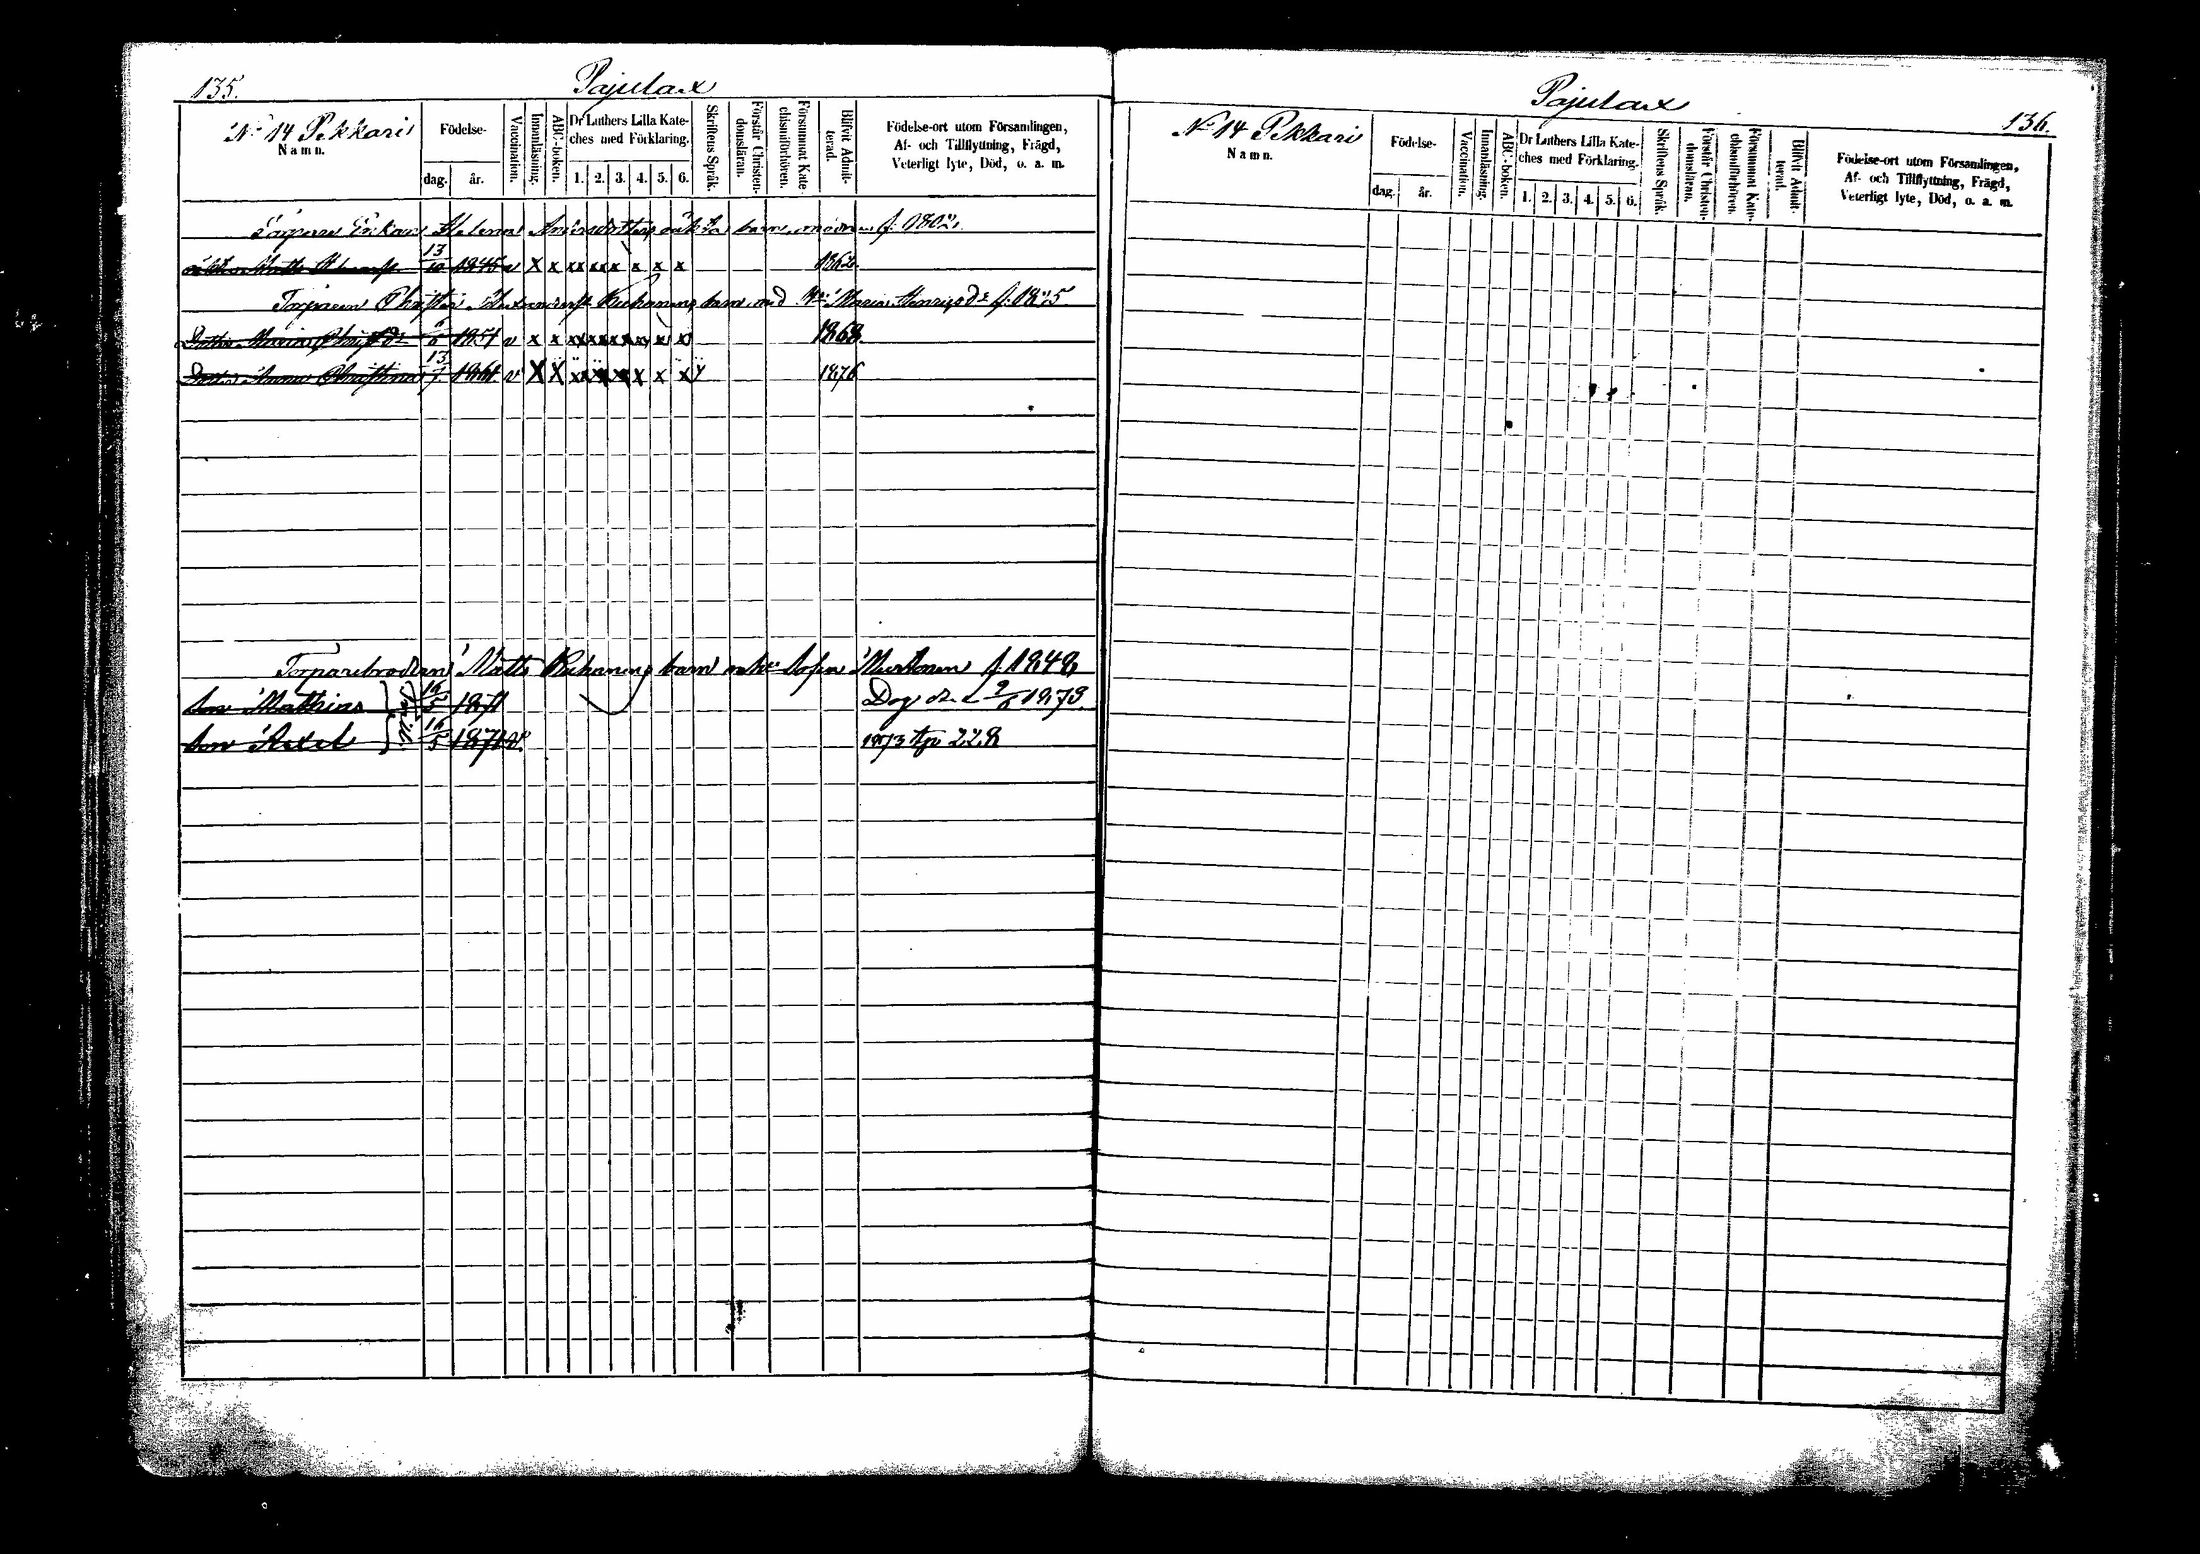 135.
Pajulax
No 14 Pekkari
Namn.
Födelse-
dag. år.
Vaccination.
Innanläsning.
ABC-boken.
Dr Luthers Lilla Kate-
ches med Förklaring.
1. 2. 3. 4. 5. 6.
Skriftens Språk.
Förstår Christen-
domsläran.
Försummat Kate-
chismiförhören.
Blifvit Admit-
terad.
Födelse-ort utom Församlingen,
Af- och Tillflyttning, Frägd,
Veterligt lyte, Död, o. a. m.
Enkan Helena Andersdotters oäkta barn, f. 1802.
Matts 13/10 1845 v x x xx xx x x x x 1862
Torparen Christer Ruhanens barn med Maria Henricsdr f. 1825
Maria 6 1851 v x x 1868
Anna Christina 13 1861 v X X 1876
Torparebrodren Matts Ruhanens barn Sofia f. 1848
Son Mathias 16/5 1871 Dog d. 2/6 1873.
Son Axel 16/5 1871 v. 1873 228
Pajulax
136.
No 14 Pekkari
Namn.
Födelse-
dag. år.
Vaccination.
Innanläsning.
ABC-boken.
Dr Luthers Lilla Kate-
ches med Förklaring.
1. 2. 3. 4. 5. 6.
Skriftens Språk.
Förstår Christen-
domsläran.
Försummat Kate-
chismiförhören.
Blifvit Admit-
terad.
Födelse-ort utom Församlingen,
Af- och Tillflyttning, Frägd,
Veterligt lyte, Död, o. a. m.